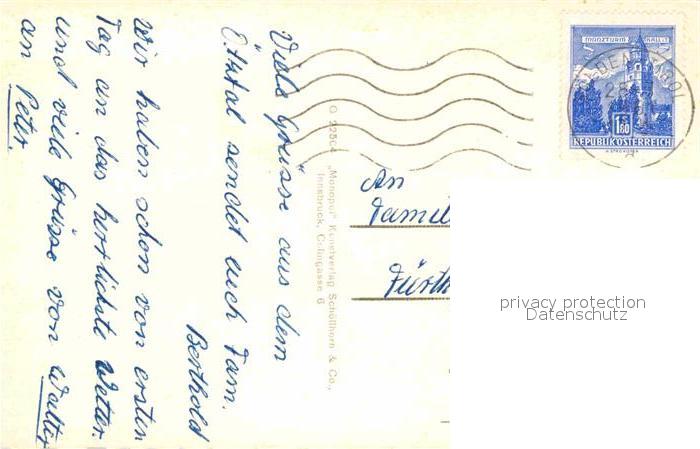 Viele Grüsse aus dem
Ötztal sendet euch Fam.
Berthold
Wir haben schon von ersten
Tag an das herrlichste Wetter.
und viele Grüsse von Walter
an Peter.
"Monopol" Kunstverlag Schöllhorn & Co.,
Innsbruck, Colingasse 6
MÜNZTURM HALL I.T.
1.80
REPUBLIK ÖSTERREICH
An
Famil
Fürth
privacy protection
Datenschutz